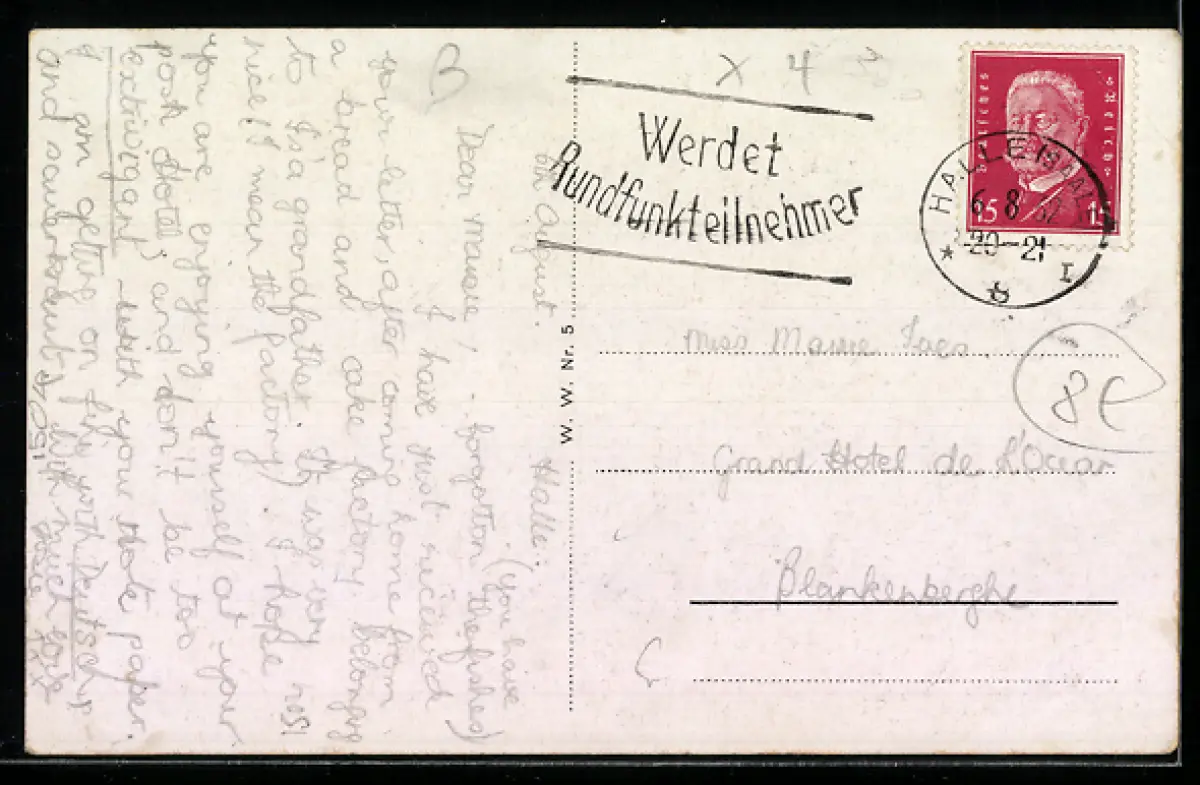 Halle.
6th August.
Dear Massie, (you have
forgotten the fishes)
I have just recieved
your letter, after coming home from
a bread and cake factory belonging
to Isa grandfather. It was very
nice (I mean the factory). I hope
you are enjoying yourself at your
posh Hotel, and don't be too
extravigant with your note paper.
I am getting on fine with Deutsch,
and sauerkraut. With much love
x 4
Werdet
Rundfunkteilnehmer
Deutsches Reich
15 15
HALLE (SAALE)
6.8.32
20-21
* I
W. W. Nr. 5
Miss Massie
Grand Hotel de L'Ocean
Blankenberghe
8€